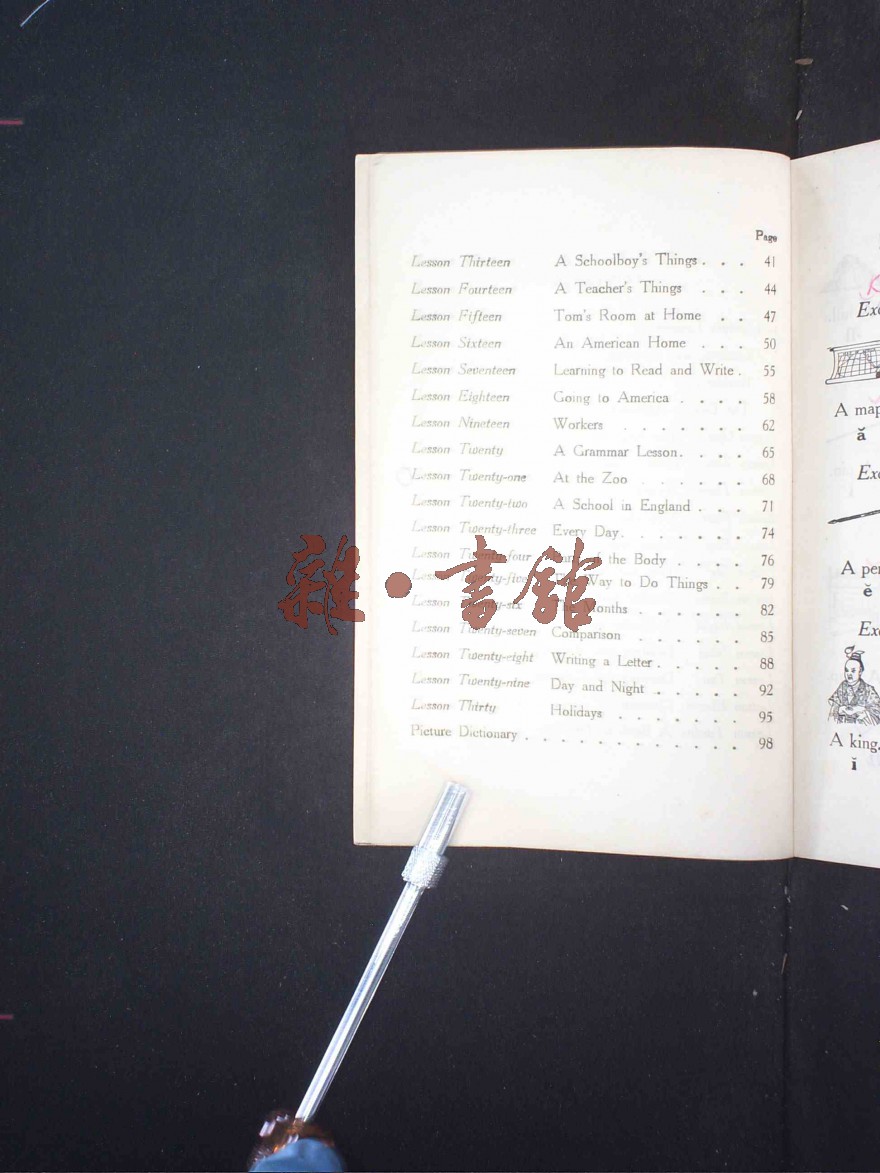 Page
Lesson Thirteen A Schoolboy's Things . . . 41
Lesson Fourteen A Teacher's Things . . . 44
Lesson Fifteen Tom's Room at Home . . 47
Lesson Sixteen An American Home . . . 50
Lesson Seventeen Learning to Read and Write . 55
Lesson Eighteen Going to America . . . . 58
Lesson Nineteen Workers . . . . . . . 62
Lesson Twenty A Grammar Lesson . . . . 65
Lesson Twenty-one At the Zoo . . . . . . 68
Lesson Twenty-two A School in England . . . 71
Lesson Twenty-three Every Day . . . . . . . 74
Lesson Twenty-four the Body . . . . 76
Lesson Twenty-five Way to Do Things . . 79
Lesson Months . . . . . . 82
Lesson Twenty-seven Comparison . . . . . . 85
Lesson Twenty-eight Writing a Letter . . . . . 88
Lesson Twenty-nine Day and Night . . . . . 92
Lesson Thirty Holidays . . . . . . . 95
Picture Dictionary . . . . . . . . . . . . 98
雜·書館
A map
ă
A pen
ĕ
A king.
ĭ